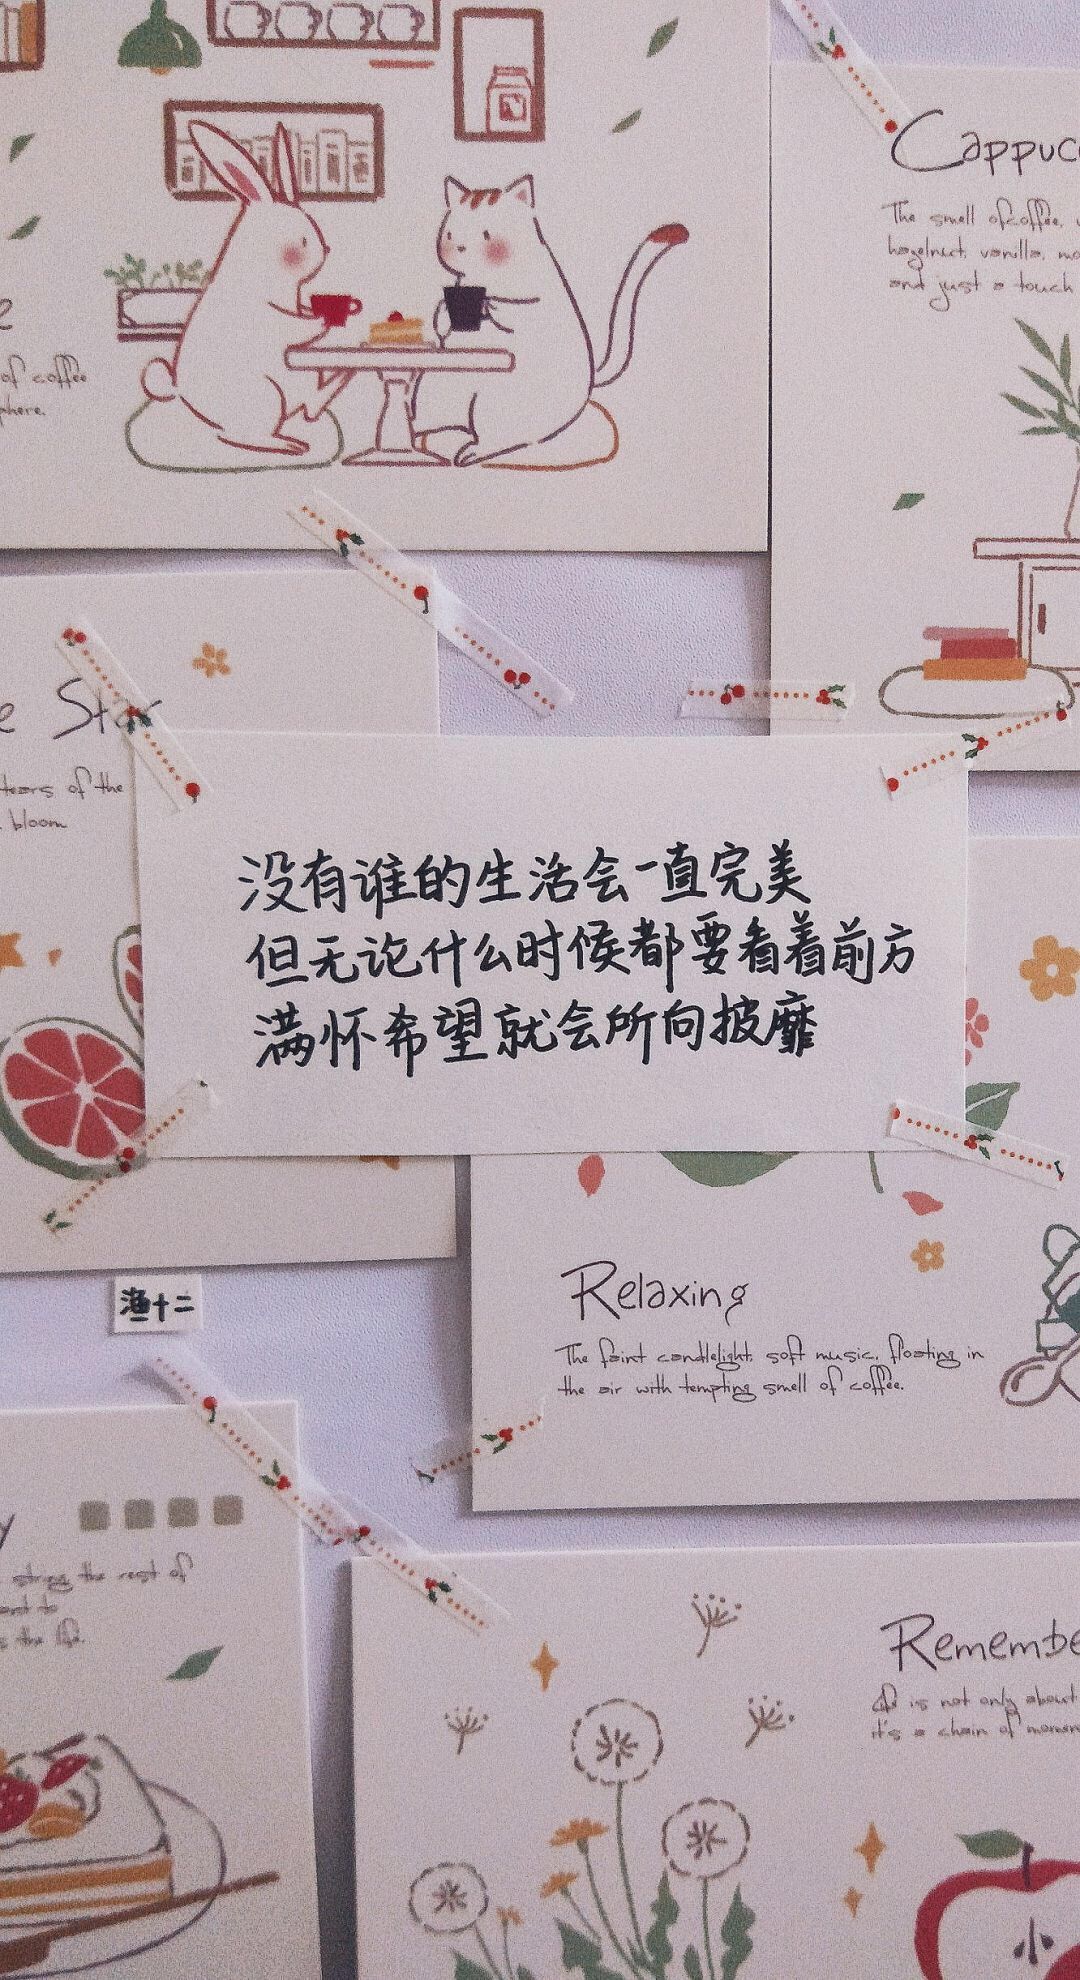 Cappucc
The smell ofcoffee,
hazelnut, vanilla, mo
and just a touch
of coffee
phere.
e Star
tears of the
bloom
没有谁的生活会一直完美
但无论什么时候都要看着前方
满怀希望就会所向披靡
渔十二
Relaxing
The faint candlelight, soft music, floating in
the air with tempting smell of coffee.
y
string the rest of
s the life.
Remembe
is not only about
it's a chain of momen